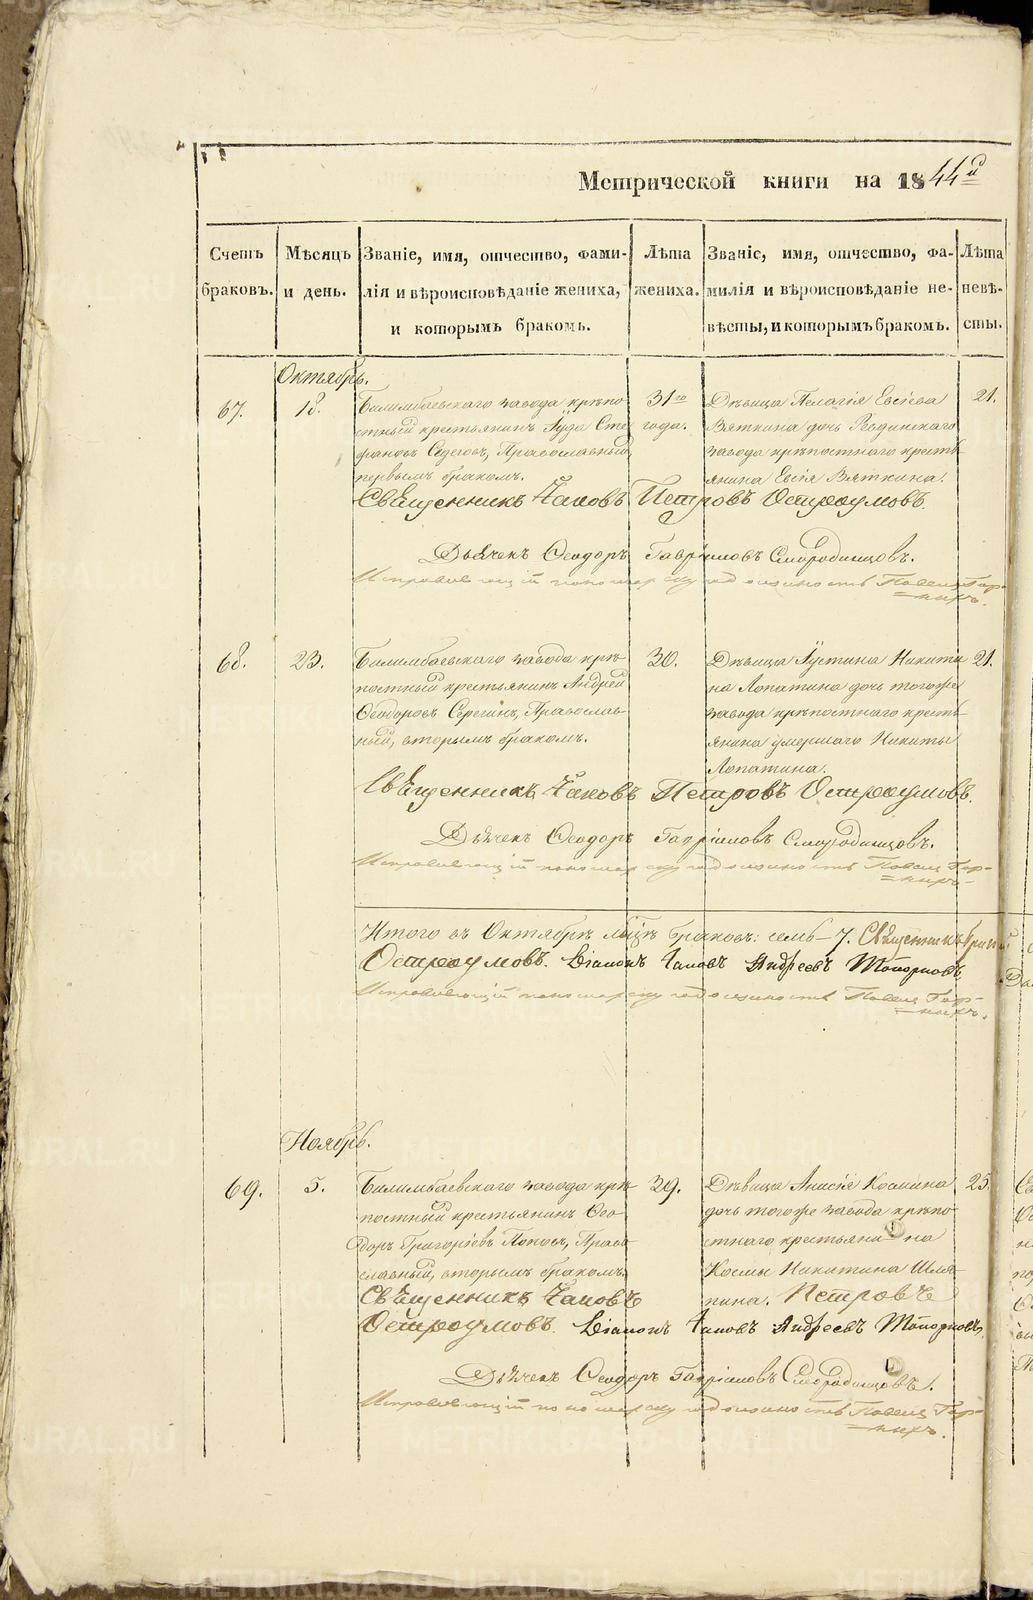 Метрической книги на 1844й
Счетъ браковъ.
Мѣсяцъ и день.
Званіе, имя, отчество, фами-
лія и вѣроисповѣданіе жениха,
и которымъ бракомъ.
Лѣта жениха.
Званіе, имя, отчество, фа-
милія и вѣроисповѣданіе не-
вѣсты, и которымъ бракомъ.
Лѣта невѣ-
сты.
Октябрь.
67.
18.
Билимбаевскаго завода крѣпо-
стный крестьянинъ Іуда Сте
фановъ Православный,
первымъ бракомъ.
31го
года.
Дѣвица Пелагія Евсіева
Вяткина дочь Ревдинскаго
завода крѣпостнаго кресть
янина Евсія Вяткина.
21.
Священникъ Іаковъ Петровъ Остроумовъ.
Дьячекъ Ѳеодоръ Гавріиловъ Смородинцовъ.
Исправляющій пономарскую должность Павелъ Гор-
нихъ.
68.
23.
Билимбаевскаго завода крѣ-
постный крестьянинъ Андрей
Ѳеодоровъ Серегинъ, Православ-
ный, вторымъ бракомъ.
30.
Дѣвица Іустина Никити
на Лопатина дочь тогоже
завода крѣпостнаго кресть-
янина умершаго Никиты
Лопатина.
21.
Священникъ Іаковъ Петровъ Остроумовъ.
Дьячекъ Ѳеодоръ Гавріиловъ Смородинцовъ.
Исправляющій пономарскую должность Павелъ Гор-
нихъ
Итого въ Октябрѣ мцѣ браковъ: семь – 7. Священникъ
Остроумовъ. Діаконъ Іаковъ Андреевъ Топорковъ
Исправляющій пономарскую должность Павелъ Гор-
нихъ.
Ноябрь.
69.
5.
Билимбаевскаго завода крѣ-
постный крестьянинъ Ѳео
доръ Григоріевъ Поповъ, Право
славный, вторымъ бракомъ.
39.
Дѣвица Анисія Космина
дочь тогоже завода крѣпо-
стнаго крестьяни на
Космы Никитина Шля-
пина.
25.
Священникъ Іаковъ Петровъ
Остроумовъ. Діаконъ Іаковъ Андреевъ Топорковъ.
Дьячекъ Ѳеодоръ Гавріиловъ Смородинцовъ.
Исправляющій пономарскую должность Павелъ Гор-
нихъ.
METRIKI.GASO-URAL.RU